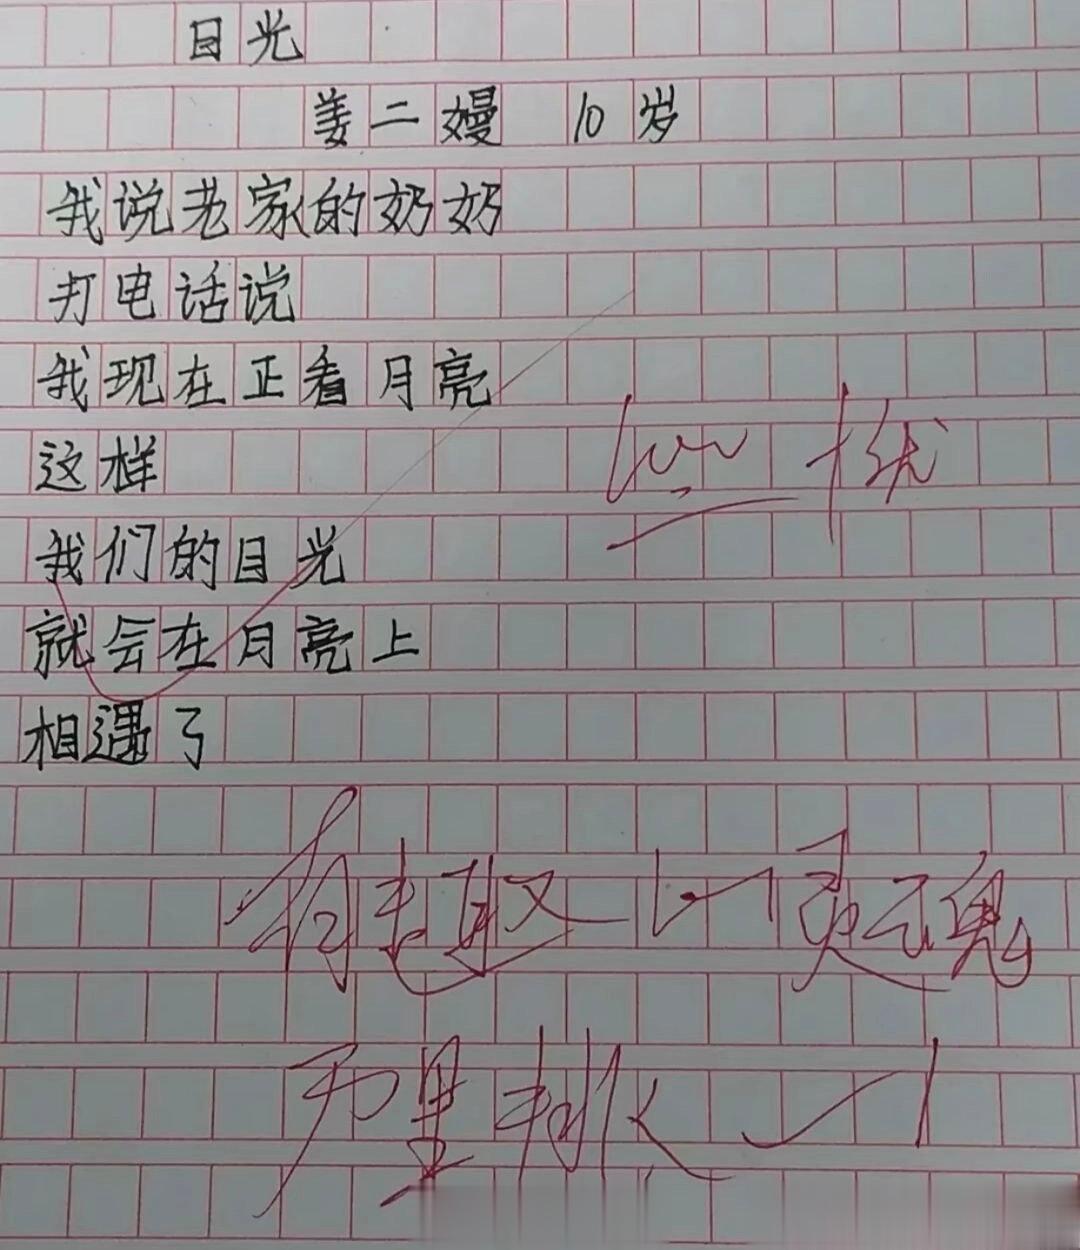 目光
姜二嫚 10岁
我说老家的奶奶
打电话说
我现在正看月亮
这样
我们的目光
就会在月亮上
相遇了
100 优
有趣的灵魂
万里挑一